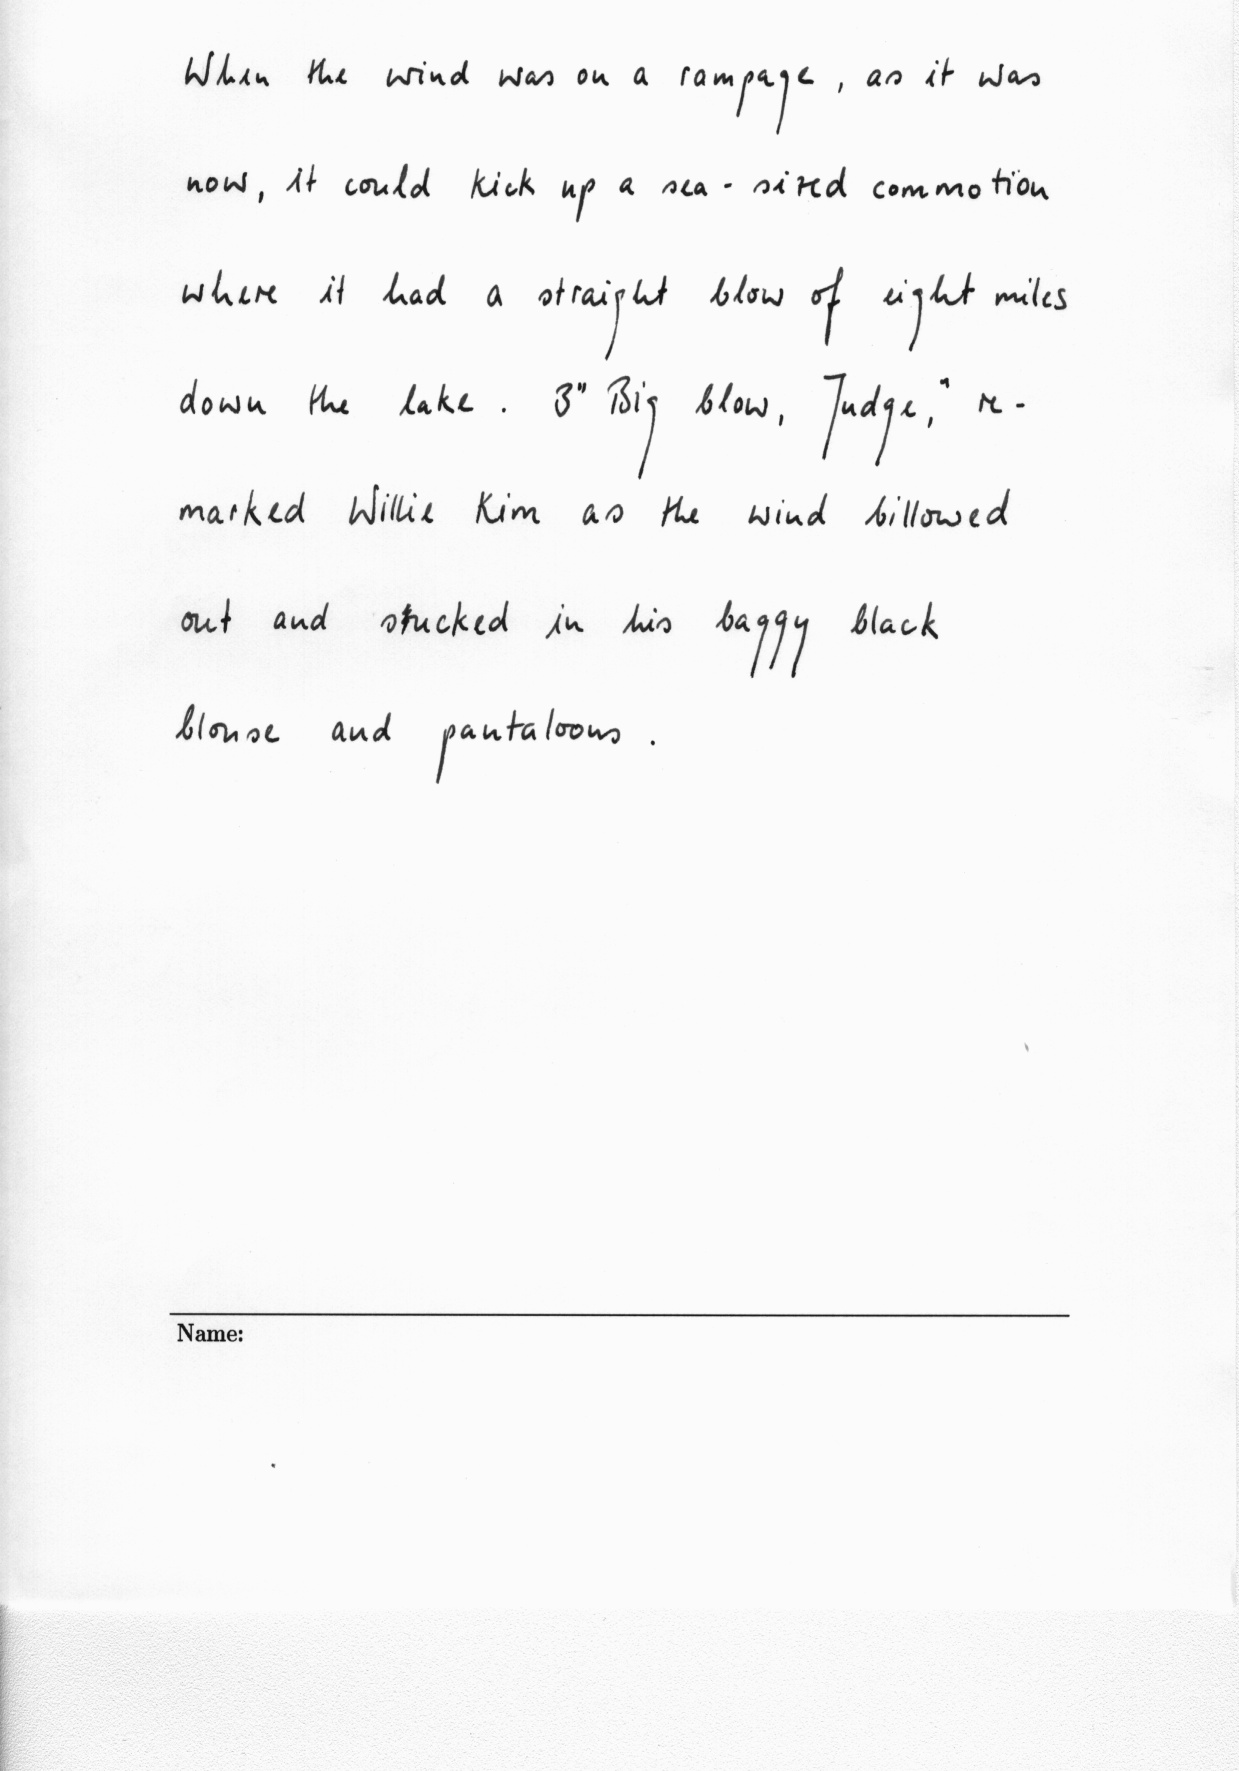 When the wind was on a rampage, as it was
now, it could kick up a sea-sized commotion
where it had a straight blow of eight miles
down the lake. 3" Big blow, Judge," re-
marked Willie Kim as the wind billowed
out and stucked in his baggy black
blouse and pantaloons.
Name: